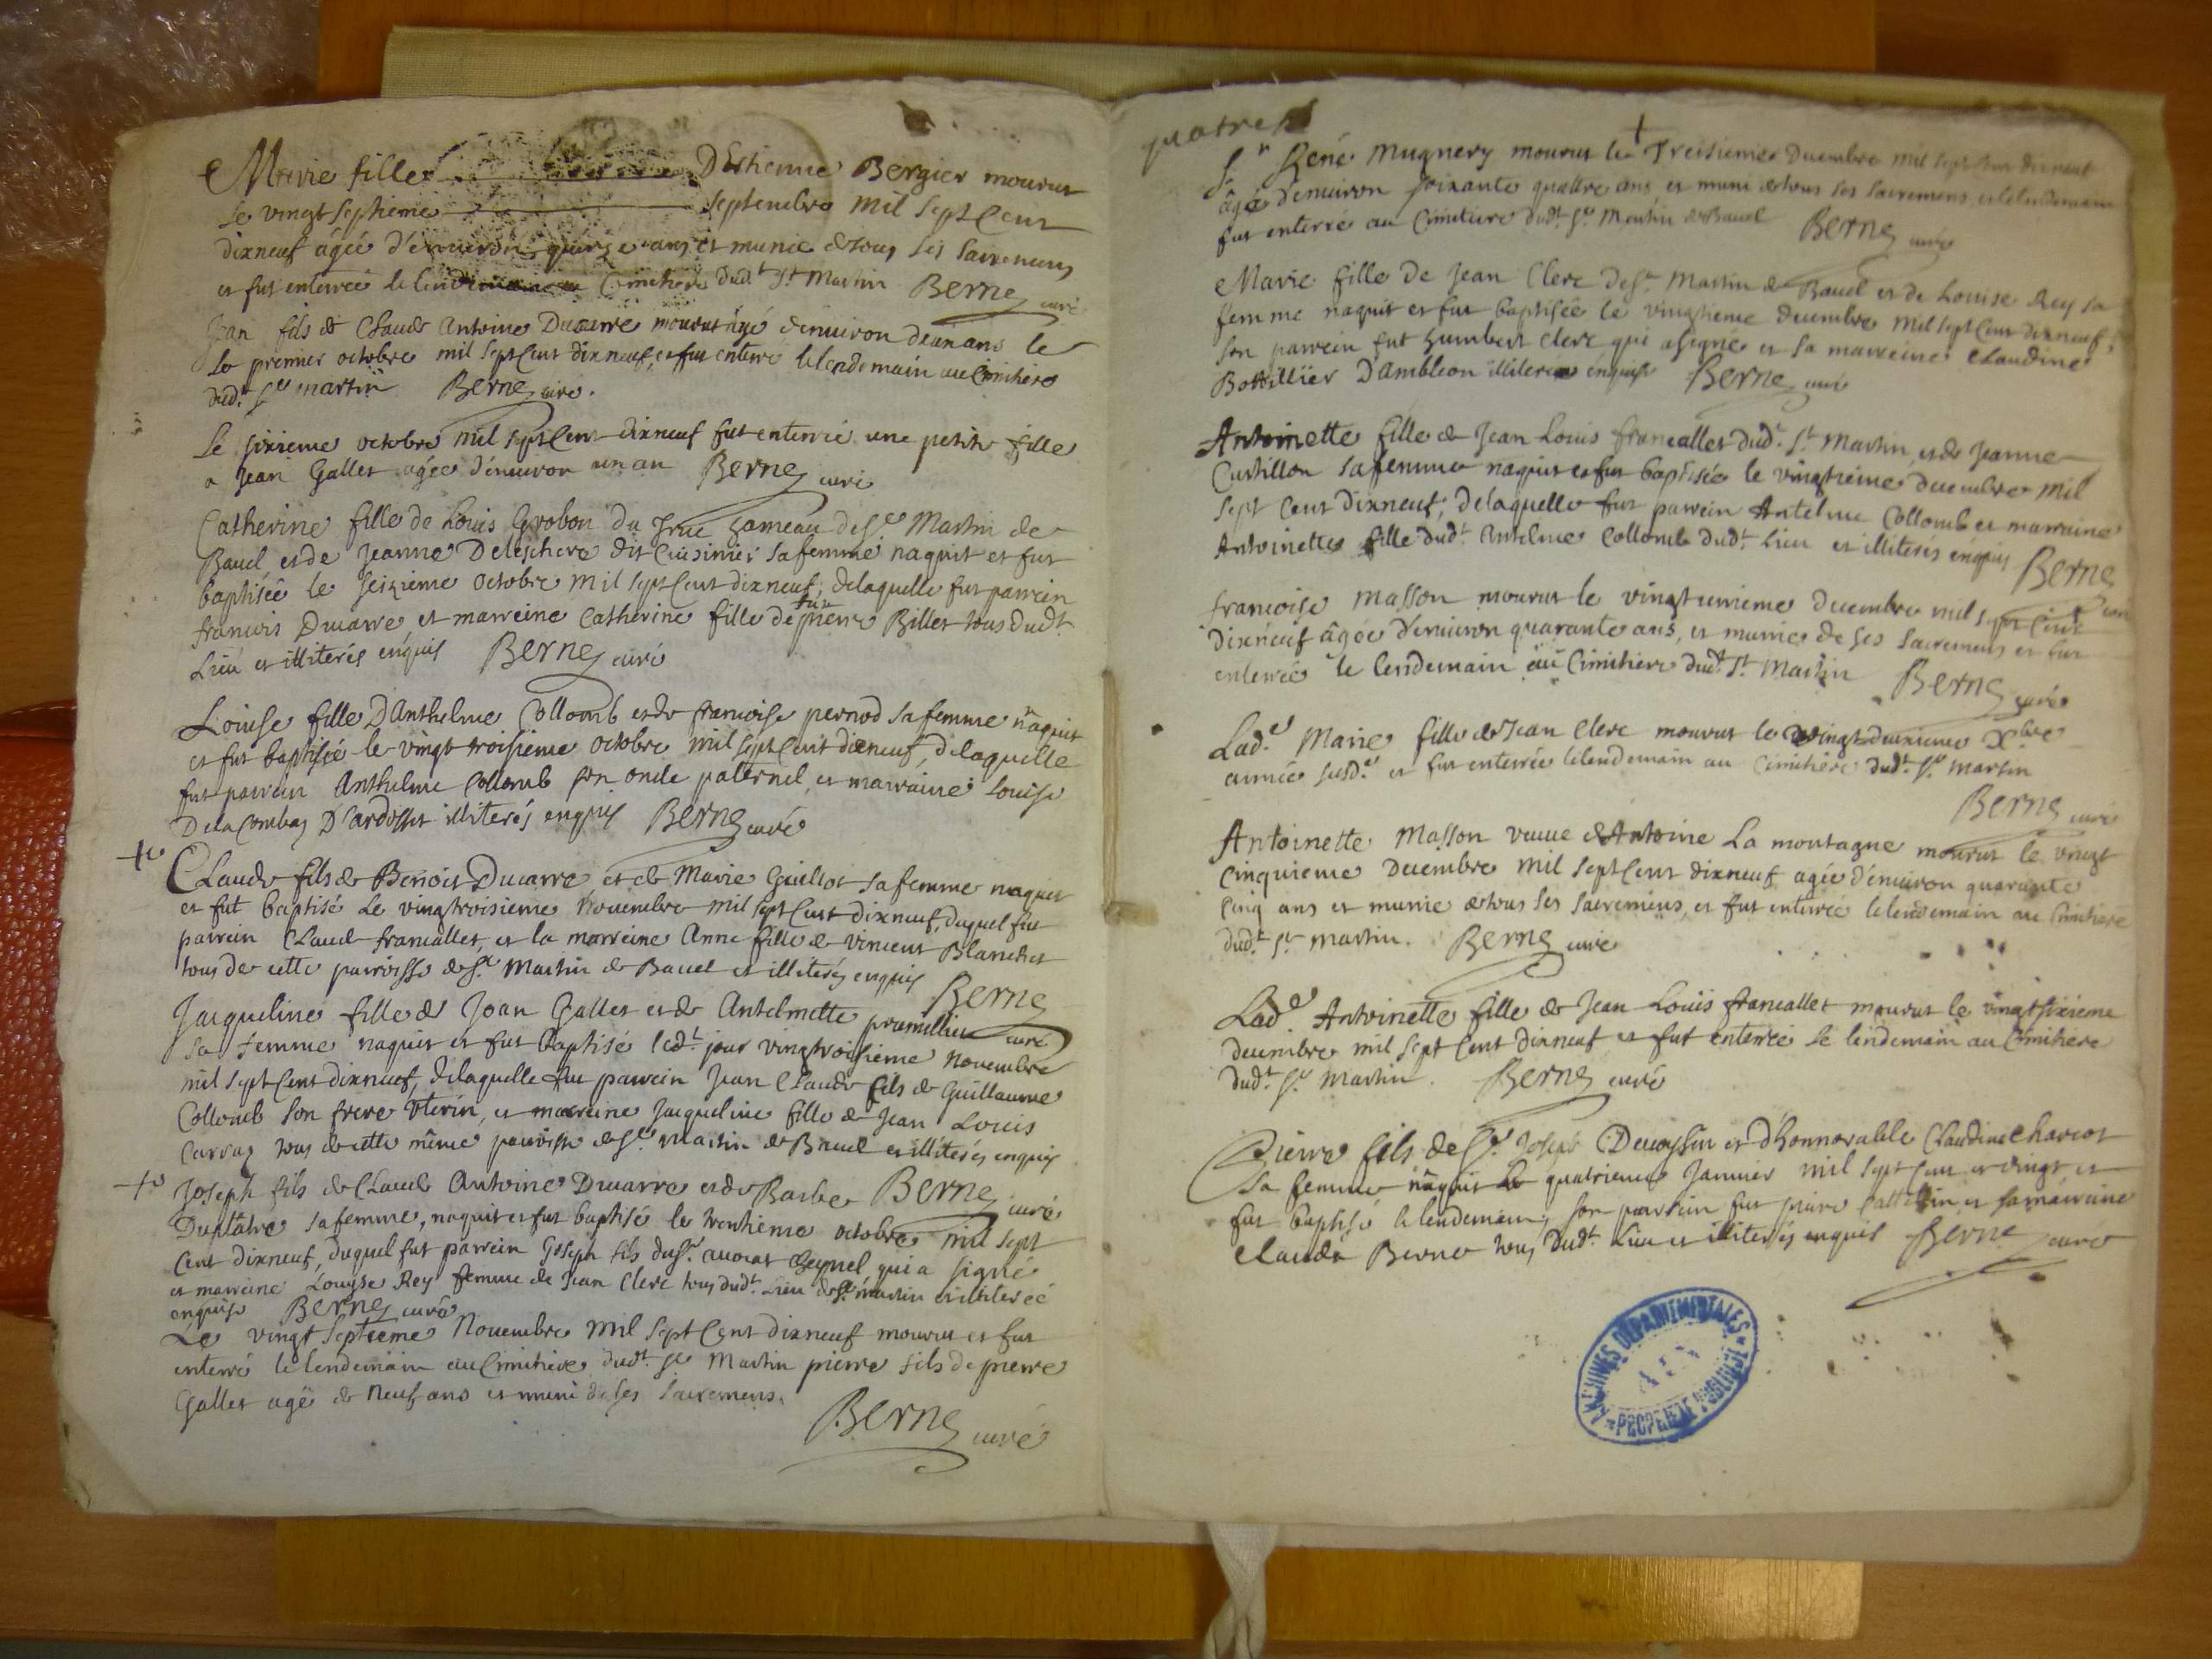 Marie fille D'Estienne Bergier mourut
le vingt septieme septembre mil sept Cent
dixneuf âgée d'environ quinze ans et munie de tous ses sacremens
et fut enterrée le lendemain Cimetiere dud.t S.t Martin Berne curé
Jean fils de Claude Antoine Ducarre mourut âgé d'environ deux ans le
le premier octobre mil sept Cent dixneuf, et fut enterré le lendemain au Cimitiere
dud.t S.t martin Berne curé.
Le sixieme octobre mil sept Cent dixneuf fut enterrée une petite fille
a Jean Gallet agée d'environ un an Berne curé
Catherine fille de Louis Grobon du Truc hameau de S.t Martin de
Bavel, et de Jeanne Deleschere dit Cuisinier sa femme naquit et fut
baptisée le seizieme octobre mil sept Cent dixneuf, delaquelle fut parrein
francois Ducarre et marreine Catherine fille de feu pierre Billet tous dudt.
Lieu et illiterés enquis Berne curé
Louise fille D'Anthelme Collomb et de francoise pernod sa femme naquit
et fut baptisée le vingt troisieme octobre mil sept Cent dixneuf, delaquelle
fut parrein Anthelme Collomb son oncle paternel, et marraine Louise
Delacombaz D'ardosset illiterés enquis Berne curé
Claude fils de Benoit Ducarre, et de Marie Guillot sa femme naquit
et fut baptisé le vingtroisieme Novembre mil sept Cent dixneuf, duquel fut
parrein Claude francallet, et la marreine Anne fille de vincent Blanchet
tous de cette parroisse de S.t Martin de Bavel et illiterés enquis Berne
curé
Jacqueline fille de Jean Gallet et de Antelmette premillieu
sa femme naquit et fut baptisé led.t jour vingtroisieme novembre
mil sept Cent dixneuf, delaquelle fut parrein Jean Claude fils de Guillaume
Collomb son frere Uterin, et marreine Jacqueline fille de Jean Louis
tous de cette même parroisse de S.t Martin de Bavel et illiterés enquis
Joseph fils de Claude Antoine Ducarre et de Barbe Berne curé
Duplatre sa femme, naquit et fut baptisé le trentieme octobre mil sept
Cent dixneuf, duquel fut parrein Joseph fils du S.r avocat Reynel qui a signé
et marreine Louyse Rey femme de Jean Clerc tous dud.t Lieu de S.t martin et illiterée
enquise Berne curé
Le vingt septieme Novembre mil sept Cent dixneuf mourut et fut
enterré le lendemain au Cimitiere dud.t S.t Martin pierre fils de pierre
Gallet agé de neuf ans et muni de ses sacremens.
Berne curé
quatre
S.r René Mugnery mourut le Treisieme Decembre mil sept Cent dixneuf
âgé d'environ soixante quattre ans et muni de tous ses sacremens, et le lendemain
fut enterré au Cimitiere dud.t S.t Martin de Bavel Berne curé
Marie fille de Jean Clerc de S.t Martin de Bavel et de Louise Rey sa
femme naquit et fut baptisée le vingtieme decembre mil sept Cent dixneuf,
son parrein fut humbert clerc qui a signé et sa marreine Claudine
Bottillier D'Ambleon illiteree enquise Berne curé
Antoinette fille de Jean Louis francallet dud.t S.t Martin, et de Jeanne
Curtillon sa femme naquit et fut baptisée le vingtieme decembre mil
sept Cent dixneuf, delaquelle fut parrein Antelme Collomb et marraine
Antoinette fille dud.t Antelme Collomb dud.t Lieu et illiterés enquis Berne
curé
francoise Masson mourut le vingt unieme decembre mil sept Cent
dixneuf âgée d'environ quarante ans, et munie de ses sacremens et fut
enterrée le lendemain au Cimitiere dud.t S.t Martin Berne curé
Lad.e Marie fille de Jean Clerc mourut le vingt deuxieme Xbre
année susd.e et fut enterrée le lendemain au Cimitiere dud.t S.t Martin
Berne curé
Antoinette Masson veuve de Antoine La montagne mourut le vingt
Cinquieme Decembre mil sept Cent dixneuf agée d'environ quarante
cinq ans et munie de tous ses sacremens, et fut enterrée le lendemain au Cimitiere
dud.t S.t Martin. Berne curé
Lad.e Antoinette fille de Jean Louïs francallet mourut le vingt sixieme
decembre mil sept Cent dixneuf et fut enterrée le lendemain au Cimitiere
dud.t S.t Martin. Berne curé
Pierre fils de S.r Joseph et d'honnorable Claudine Charcot
sa femme naquit le quatrieme Janvier mil sept Cent et vingt et
fut baptisé le lendemain, son parrein fut pierre et sa marreine
Claudà Berne tous Dud.t Lieu et illiterés enquis Berne curé
ARCHIVES DEPARTEMENTALES
AIN
PROPRIETE PUBLIQUE